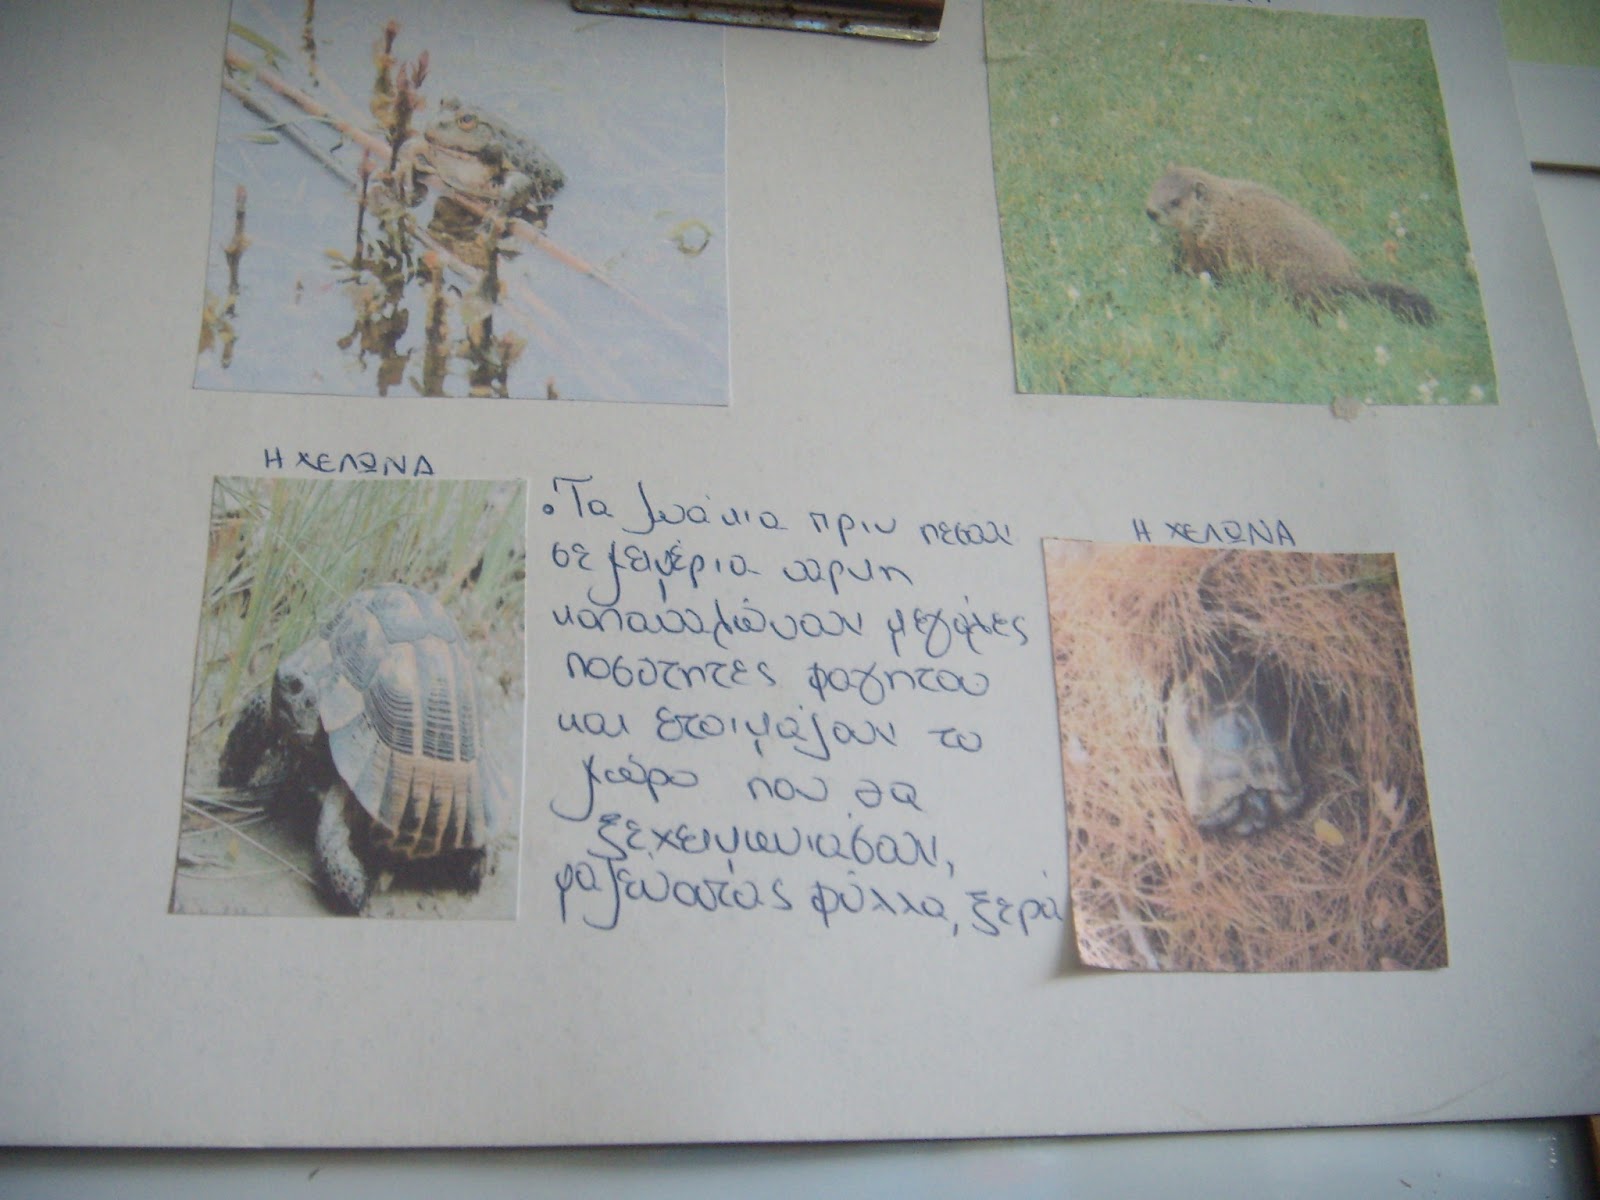 Η ΧΕΛΩΝΑ
• Τα ζωάκια πριν πεσουν
σε χειμέρια ναρκη
καταναλώνουν μεγάλες
ποσοτητες φαγητου
και ετοιμάζουν το
χώρο που θα
ξεχειμωνιάσουν,
μαζεύοντας φύλλα, ξερά
Η ΧΕΛΩΝΑ